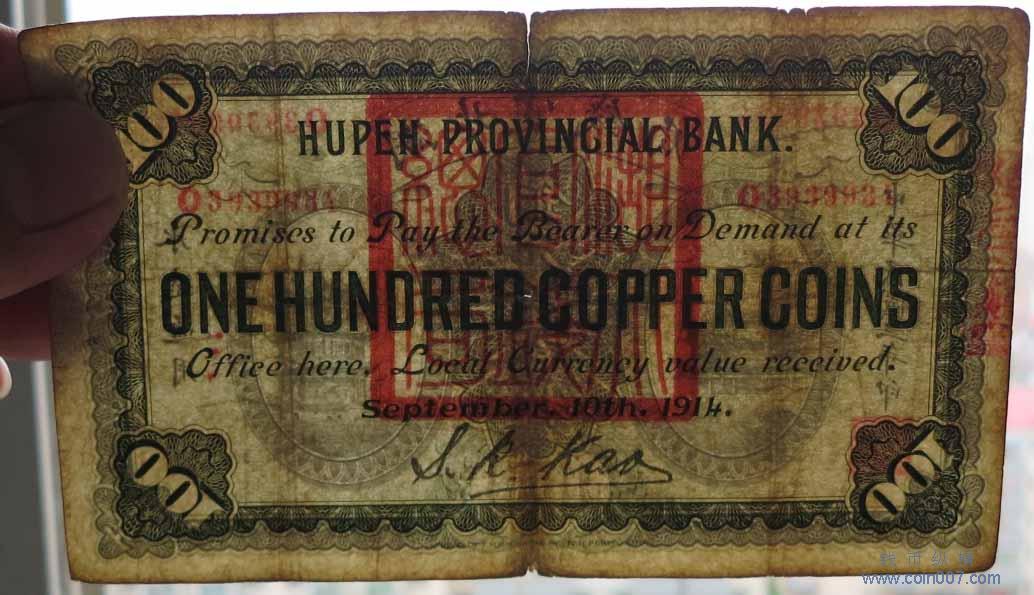 100
100
HUPEH PROVINCIAL BANK.
O3939931 O3939931
Promises to Pay the Bearer on Demand at its
ONE HUNDRED COPPER COINS
Office here. Local Currency value received.
September. 10th. 1914.
S. K. Kao
100
100
钱币纵横
www.coin007.com